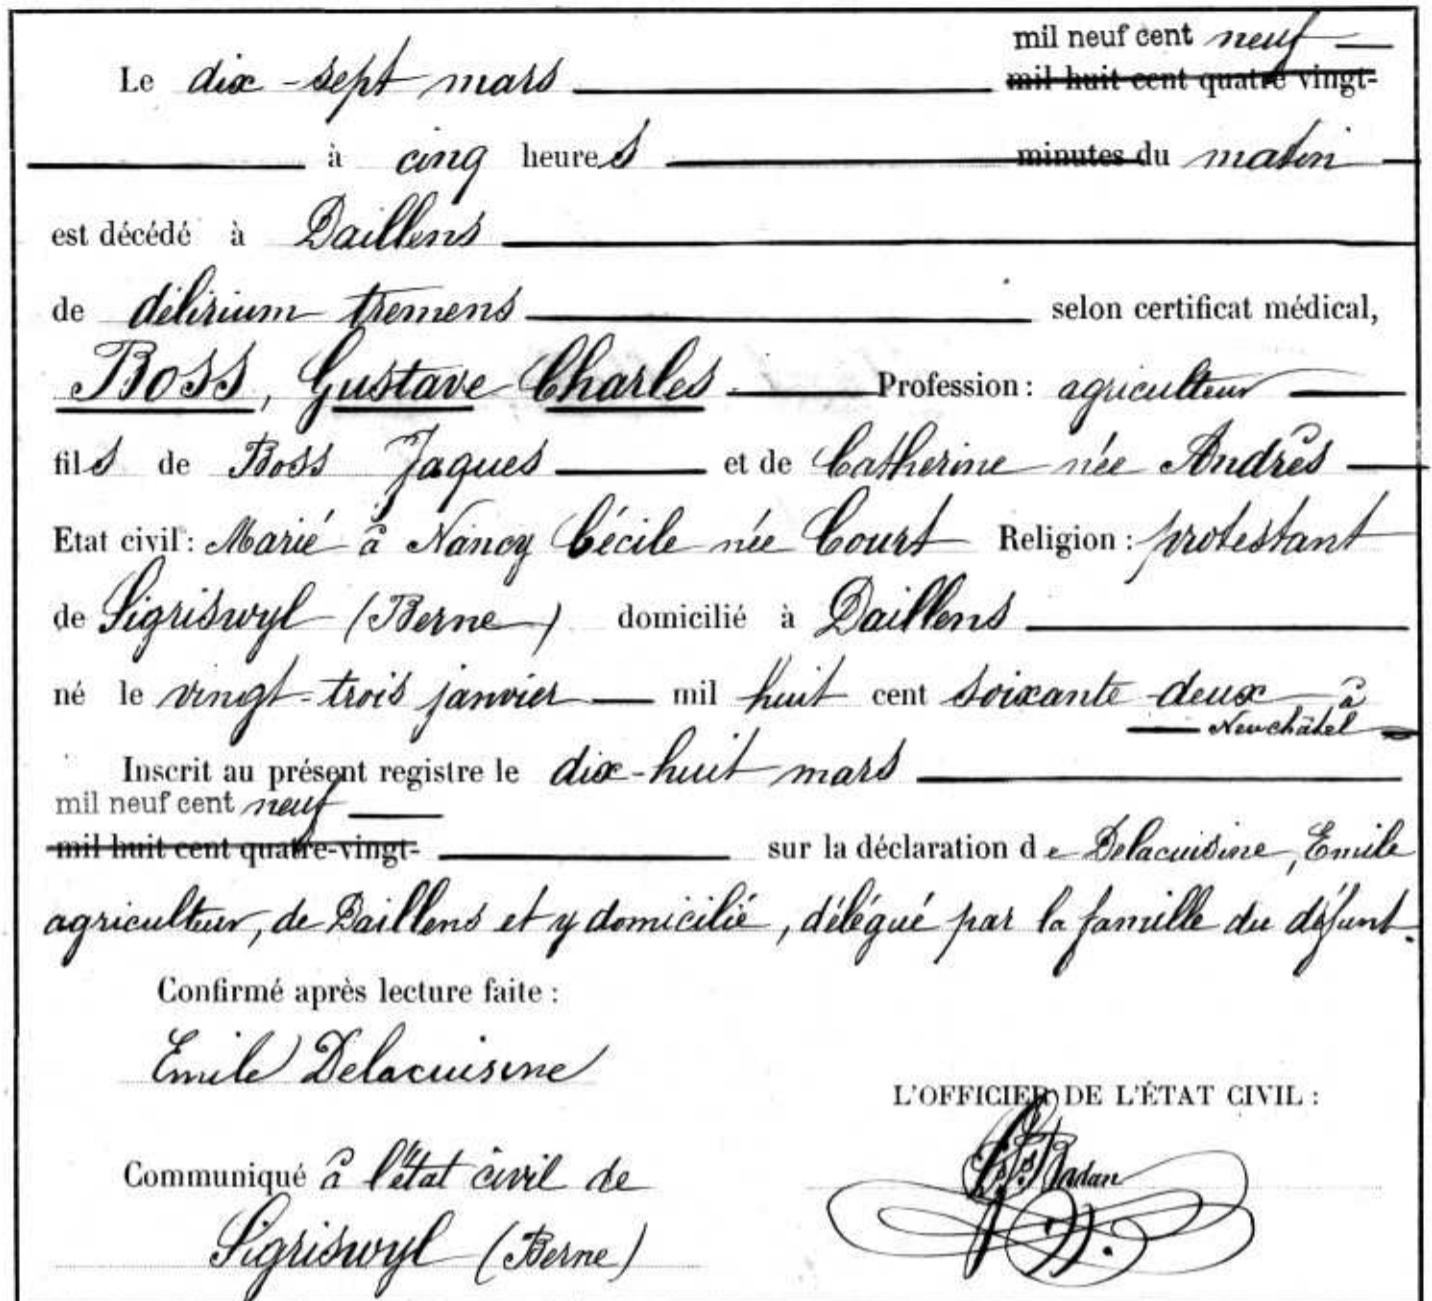 mil neuf cent neuf
Le dix-sept mars mil huit cent quatre vingt-
à cinq heures minutes du matin
est décédé à Daillens
de délirium tremens selon certificat médical,
Boss, Gustave Charles. Profession: agriculteur
fils de Boss Jaques et de Catherine née Andrès
Etat civil: Marié à Nancy Cécile née Court Religion: protestant
de Sigriswyl (Berne) domicilié à Daillens
né le vingt-trois janvier mil huit cent soixante-deux à
Neuchâtel
Inscrit au présent registre le dix-huit mars
mil neuf cent neuf
mil huit cent quatre-vingt- sur la déclaration de Delacuisine, Emile
agriculteur, de Daillens et y domicilié, délégué par la famille du défunt.
Confirmé après lecture faite :
Emile Delacuisine
L'OFFICIER DE L'ÉTAT CIVIL :
Communiqué à l'état civil de
Sigriswyl (Berne)